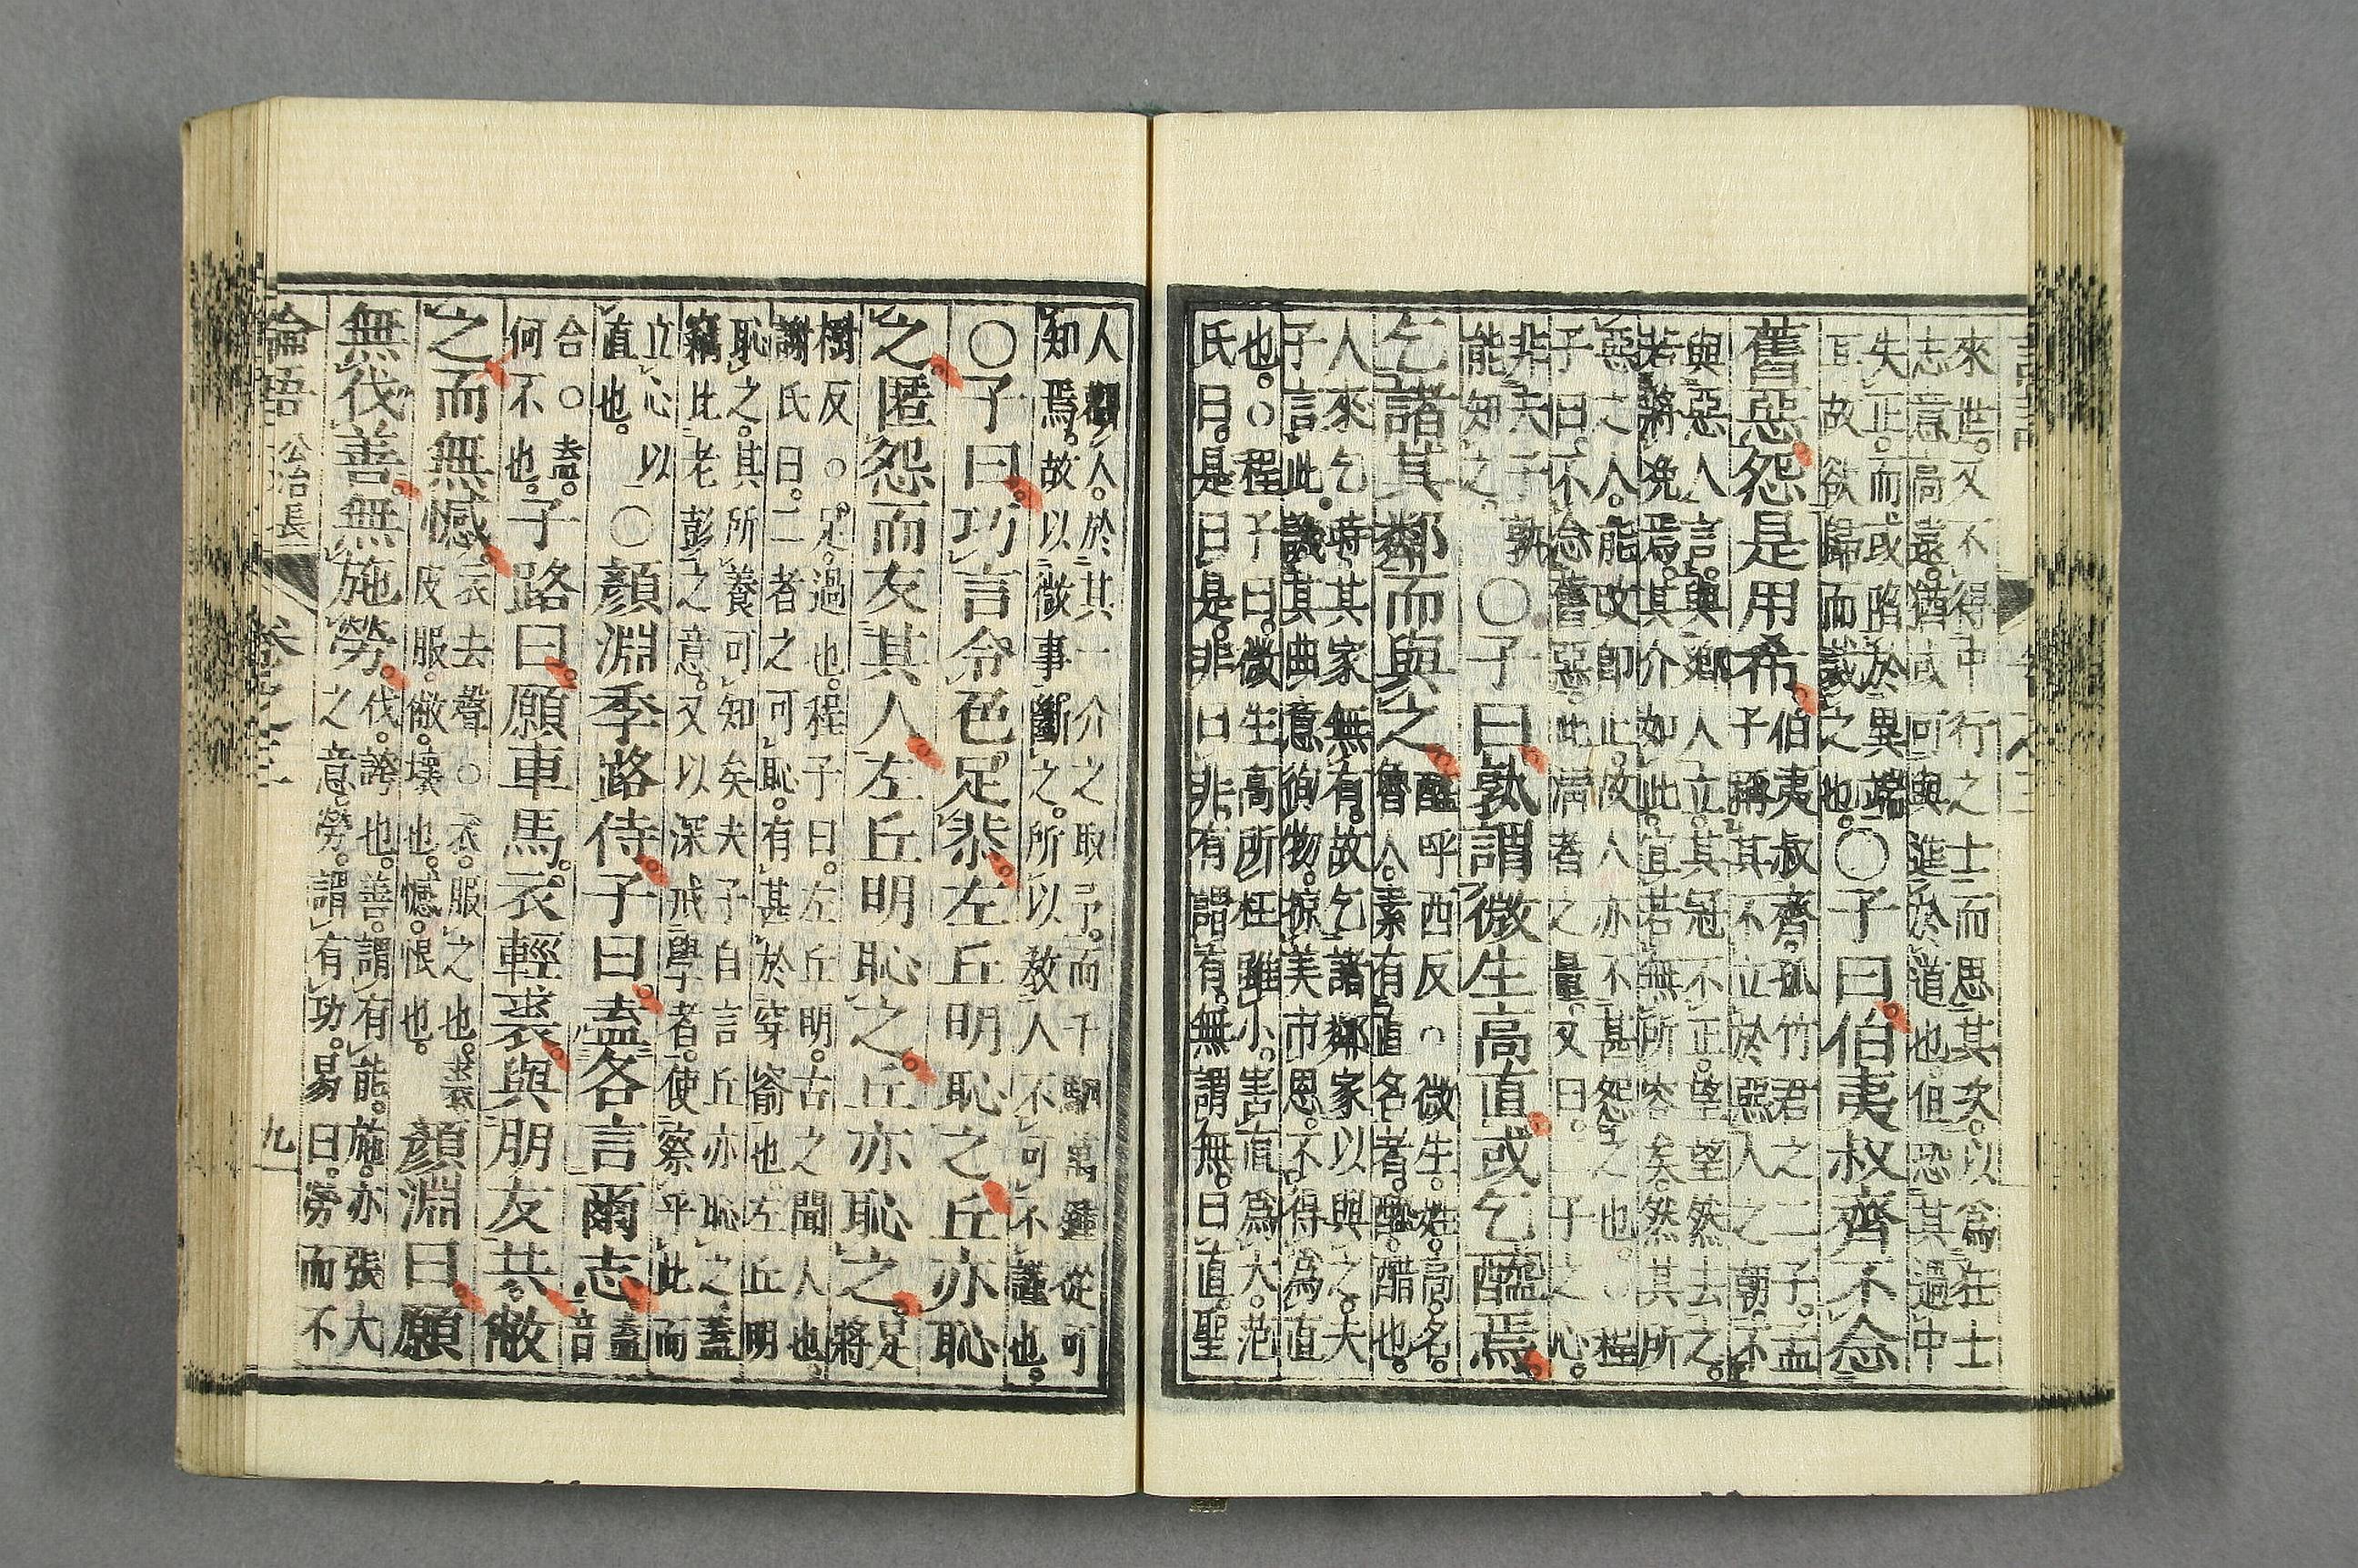 來世。又不得中行之士而思其次。以爲狂士
志意高遠。猶或可與進於道也。但恐其過中
失正。而或陷於異端
耳。故欲歸而裁之也。
○子曰。伯夷叔齊不念
舊惡。怨是用希。
伯夷叔齊。孤竹君之二子。孟
子稱其不立於惡人之朝。不
與惡人言。與鄉人立。其冠不正。望望然去之。
若將浼焉。其介如此。宜若無所容矣。然其所
惡之人。能改卽止。故人亦不甚怨之也。○程
子曰。不念舊惡。此淸者之量。又曰。二子之心。
非夫子孰
能知之。
○子曰。孰謂微生高直。或乞醯焉。
乞諸其鄰而與之。
醯呼西反○微生。姓。高。名。
魯人。素有直名者。醯。醋也。
人來乞時。其家無有。故乞諸鄰家以與之。夫
子言此。譏其曲意徇物。掠美市恩。不得爲直
也。○程子曰。微生高所枉雖小。害直爲大。范
氏曰。是曰是。非曰非。有謂有。無謂無。曰直。聖
人觀人。於其一介之取予。而千駟萬鍾從可
知焉。故以微事斷之。所以敎人不可不謹也。
○子曰。巧言令色足恭。左丘明恥之。丘亦恥
之。匿怨而友其人。左丘明恥之。丘亦恥之。
足
將
樹反。○足。過也。程子曰。左丘明。古之聞人也。
謝氏曰。二者之可恥。有甚於穿窬也。左丘明
恥之。其所養可知矣。夫子自言丘亦恥之。蓋
竊比老彭之意。又以深戒學者。使察乎此而
立心以
直也。
○顏淵季路侍。子曰。盍各言爾志。
盍
音
合。○盍。
何不也。
子路曰。願車馬。衣輕裘。與朋友共。敝
之而無憾。
衣去聲○衣。服之也。裘。
皮服。敝。壞也。憾。恨也。
顏淵曰。願
無伐善。無施勞。
伐。誇也。善。謂有能。施。亦張大
之意。勞。謂有功。易曰。勞而不
論語 公冶長 卷之三 九